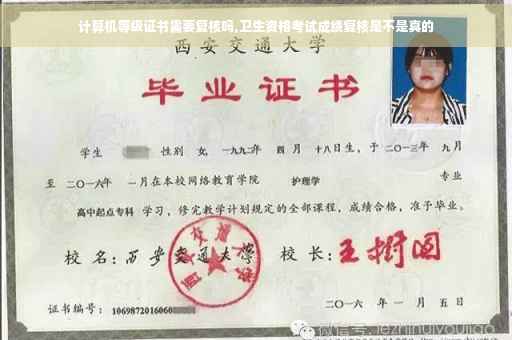 计算机等级证书需要复核吗,卫生资格考试成绩复核是不是真的
西安交通大学
毕业证书
学生 性别 女, 一九九二年 四月 十八日生, 于二〇一三年 九月
至 二〇一六年 一月在本校网络教育学院 护理学 专业
高中起点专科 学习, 修完教学计划规定的全部课程, 成绩合格, 准予毕业。
校名: 西安交通大学 校长: 王树国
西安交通大学
证书编号: 1069872016060
二〇一六年 一月 五日
微信号: jezhinuiyoujiao